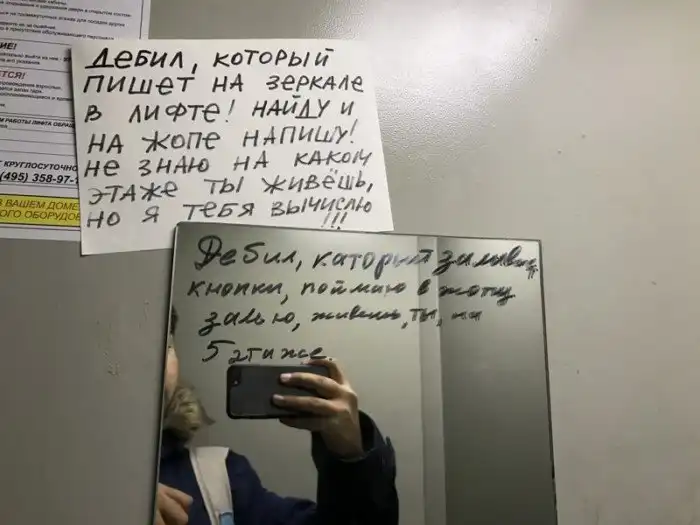 ИЕ!
ЕТСЯ!
КРУГЛОСУТОЧНО
(495) 358-97-
В ВАШЕМ ДОМЕ
ОГО ОБОРУДОВ
ДЕБИЛ, КОТОРЫЙ
ПИШЕТ НА ЗЕРКАЛЕ
В ЛИФТЕ! НАЙДУ И
НА ЖОПЕ НАПИШУ!
НЕ ЗНАЮ НА КАКОМ
ЭТАЖЕ ТЫ ЖИВЁШЬ,
НО Я ТЕБЯ ВЫЧИСЛЮ
!!!
Дебил, каторый заливает
кнопки, поймаю в жопу
залью, живешь, ты, на
5 этаже.